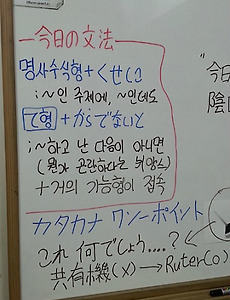 今日の文法
명사수식형+くせに
;~인 주제에, ~인데도
て형+からでないと
;~하고 난 다음이 아니면
(뭔가 곤란하다는 뉘앙스)
+거의 가능형이 접속
カタカナ ワンーポイント
これ何でしょう....?
共有機(x)→Ruter(o)
"今日
陰